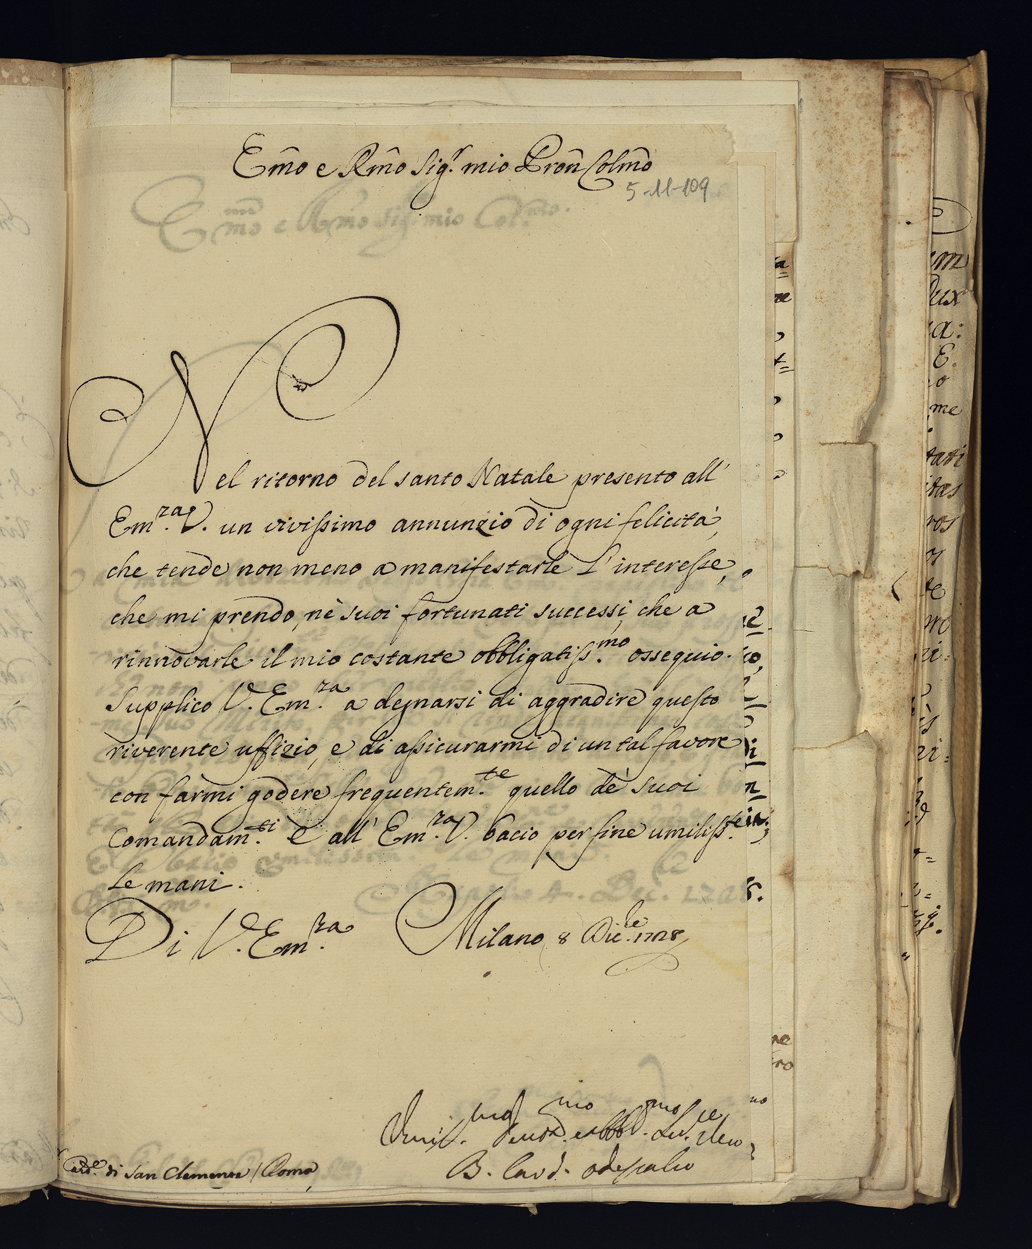 Em̃o e Rm̃o Sig.r mio Pron̄ Colm̃o
5-11-109
Nel ritorno del santo Natale presento all'
Em.za V. un vivissimo annunzio di ogni felicità,
che tende non meno a manifestarle l'interesse,
che mi prendo, nè suoi fortunati successi, che a
rinnovarle il mio costante obbligatiss.mo ossequio.
Supplico V. Em.za a degnarsi di aggradire questo
riverente uffizio, e di assicurarmi di un tal favore
con farmi godere frequentem.te quello dè suoi
Comandam.ti E all' Em.za V. bacio per fine umiliss.te
le mani.
Di V. Em.za Milano 8 Dic.le 1728
Umil.mo Devot.mo obbl.mo Ser.re vero
B. Card. Odescalco
Card.e di San Clemente / Roma